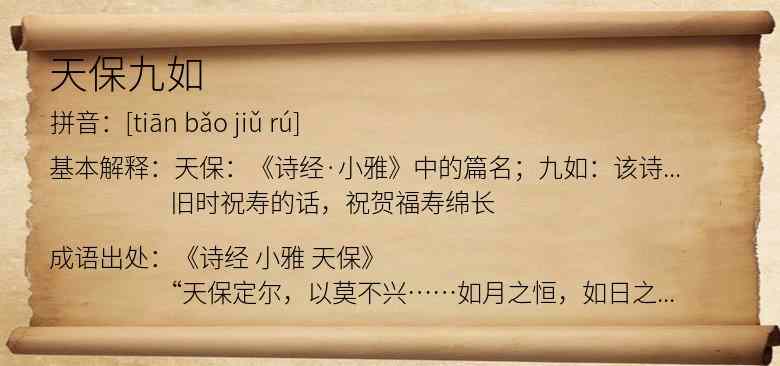 天保九如
拼音：[tiān bǎo jiǔ rú]
基本解释：天保：《诗经·小雅》中的篇名；九如：该诗...
旧时祝寿的话，祝贺福寿绵长
成语出处：《诗经 小雅 天保》
“天保定尔，以莫不兴……如月之恒，如日之...